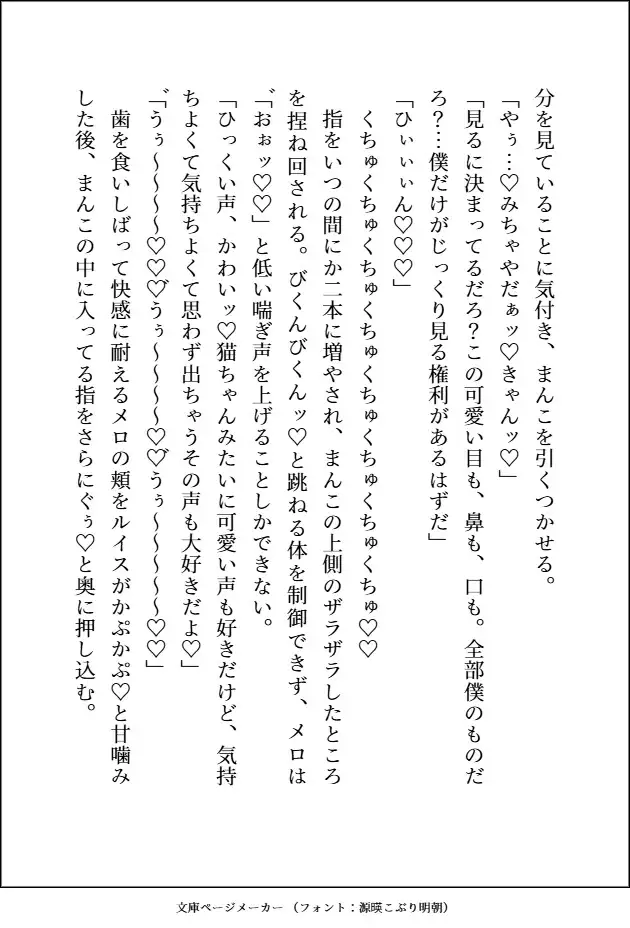 分を見ていることに気付き、まんこを引くつかせる。
「やぅ…♡みちゃやだぁッ♡きゃんッ♡」
「見るに決まってるだろ？この可愛い目も、鼻も、口も。全部僕のものだ
ろ？…僕だけがじっくり見る権利があるはずだ」
「ひぃぃぃん♡♡♡」
くちゅくちゅくちゅくちゅくちゅくちゅくちゅくちゅ♡♡
指をいつの間にか二本に増やされ、まんこの上側のザラザラしたところ
を捏ね回される。びくんびくんッ♡と跳ねる体を制御できず、メロは
「゛おぉッ♡♡」と低い喘ぎ声を上げることしかできない。
「ひっくい声、かわいッ♡猫ちゃんみたいに可愛い声も好きだけど、気持
ちよくて気持ちよくて思わず出ちゃうその声も大好きだよ♡」
「゛うぅ〜〜〜〜♡♡♡゛うぅ〜〜〜〜♡♡゛うぅ〜〜〜〜〜♡♡」
歯を食いしばって快感に耐えるメロの頬をルイスがかぷかぷ♡と甘噛み
した後、まんこの中に入ってる指をさらにぐぅ♡と奥に押し込む。
文庫ページメーカー（フォント：源暎こぶり明朝）